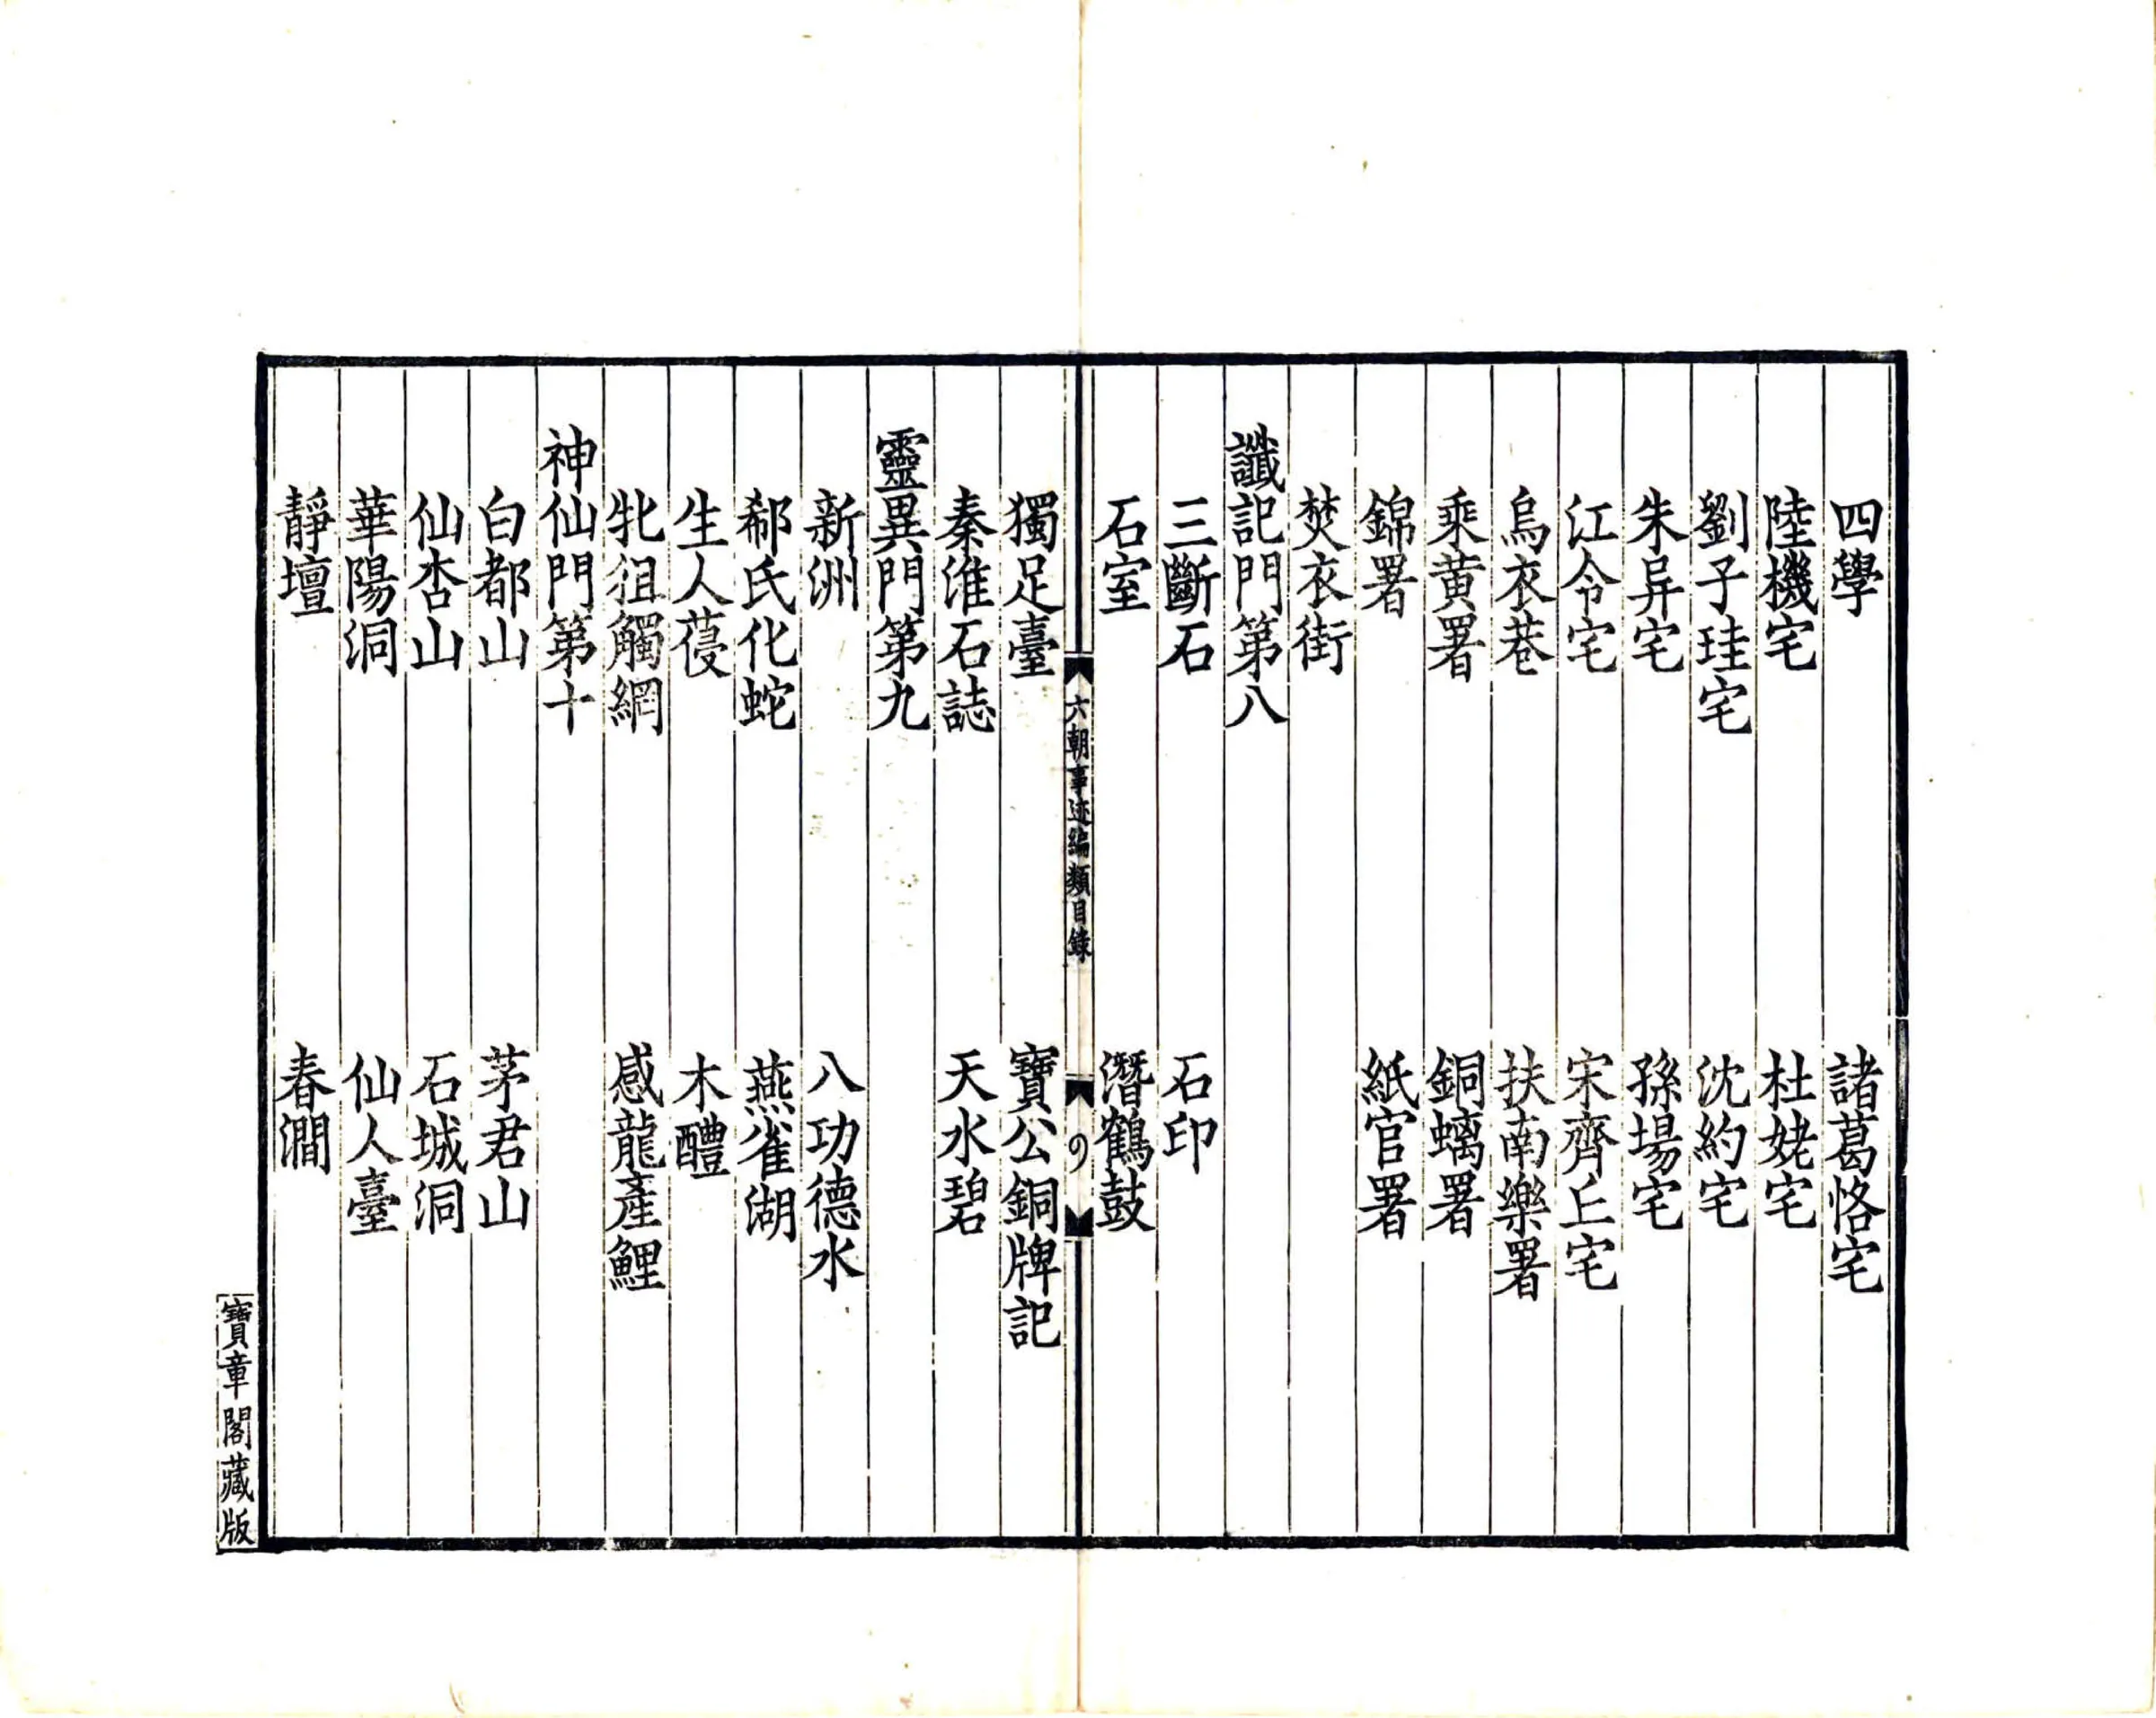 四學 諸葛恪宅
陸機宅 杜姥宅
劉子珪宅 沈約宅
朱异宅 孫瑒宅
江令宅 宋齊丘宅
烏衣巷 扶南樂署
乘黃署 銅螭署
錦署 紙官署
焚衣街
讖記門第八
三斷石 石印
石室 潛鶴鼓
六朝事迹編類目錄
獨足臺 寶公銅牌記
秦淮石誌 天水碧
靈異門第九
新洲 八功德水
郗氏化蛇 燕雀湖
生人葠 木醴
牝狙觸網 感龍產鯉
神仙門第十
白都山 茅君山
仙杏山 石城洞
華陽洞 仙人臺
靜壇 春澗
寶章閣藏版